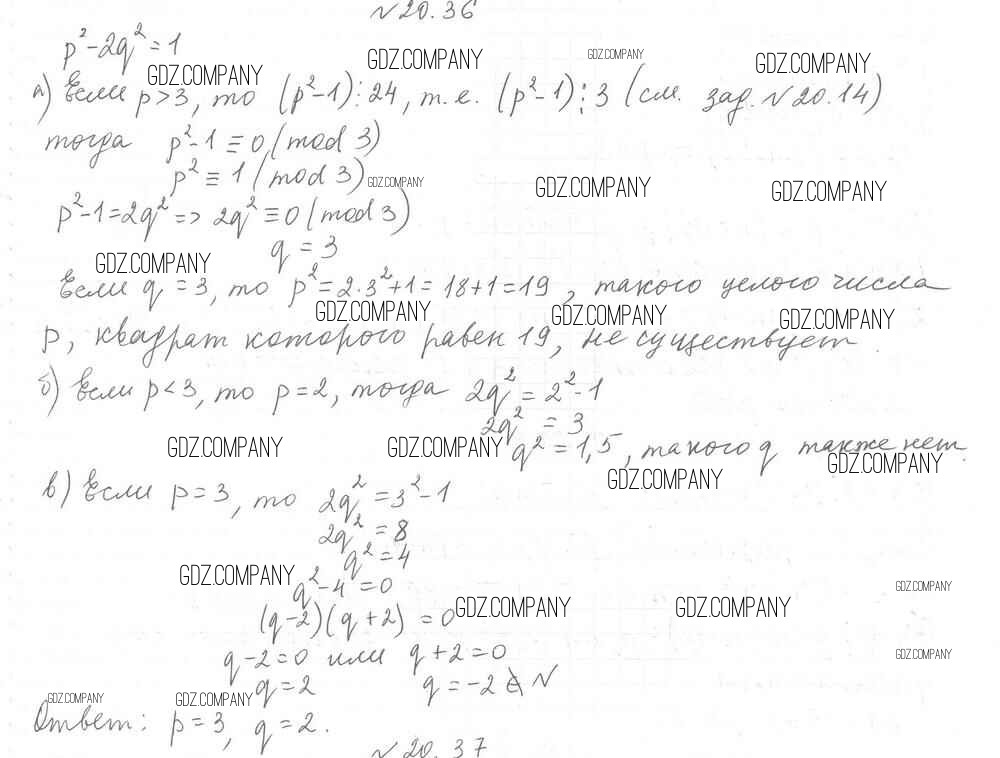 №20.36
p²-2q²=1
GDZ.COMPANY GDZ.COMPANY GDZ.COMPANY GDZ.COMPANY
а) Если p>3, то (p²-1)⋮24, т.е. (p²-1)⋮3 (см. зад. №20.14)
тогда p²-1≡0 (mod 3)
p²≡1 (mod 3)
GDZ.COMPANY GDZ.COMPANY GDZ.COMPANY
p²-1=2q² => 2q²≡0 (mod 3)
q=3
GDZ.COMPANY
Если q=3, то p²=2·3²+1=18+1=19, такого целого числа
GDZ.COMPANY GDZ.COMPANY GDZ.COMPANY
p, квадрат которого равен 19, не существует.
б) Если p<3, то p=2, тогда 2q²=2²-1
2q²=3
GDZ.COMPANY GDZ.COMPANY
q²=1,5, такого q также нет.
GDZ.COMPANY GDZ.COMPANY
в) Если p=3, то 2q²=3²-1
2q²=8
q²=4
GDZ.COMPANY
q²-4=0
GDZ.COMPANY
(q-2)(q+2)=0
GDZ.COMPANY GDZ.COMPANY
q-2=0 или q+2=0
GDZ.COMPANY
q=2 q=-2 ∉ N
GDZ.COMPANY GDZ.COMPANY
Ответ: p=3, q=2.
№20.37